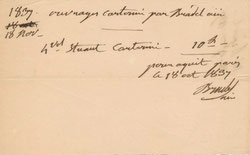 1837 ouvrages cartonné par Bradel ainé
18 Nov.
4 vol Stuart Cartonné — 10 fr
pour aquit paris
le 18 oct 1837
Bradel